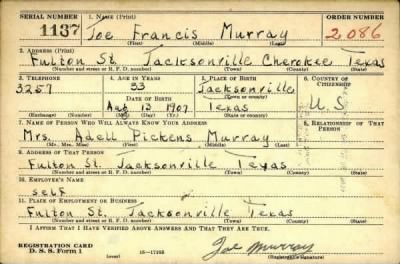 SERIAL NUMBER 1. NAME (Print) ORDER NUMBER
1137 Joe Francis Murray 2086
(First) (Middle) (Last)
2. ADDRESS (Print)
Fulton St. Jacksonville Cherokee Texas
(Number and street or R. F. D. number) (Town) (County) (State)
3. TELEPHONE 4. AGE IN YEARS 5. PLACE OF BIRTH 6. COUNTRY OF CITIZENSHIP
3257 33 Jacksonville
DATE OF BIRTH (Town or county)
13 1907 Texas U.S
(Exchange) (Number) (Mo.) (Day) (Yr.) (State or country)
7. NAME OF PERSON WHO WILL ALWAYS KNOW YOUR ADDRESS 8. RELATIONSHIP OF THAT PERSON
Mrs. Adell Pickens Murray
(Mr., Mrs., Miss) (First) (Middle) (Last)
9. ADDRESS OF THAT PERSON
Fulton St. Jacksonville Texas
(Number and street or R. F. D. number) (Town) (County) (State)
10. EMPLOYER'S NAME
self
11. PLACE OF EMPLOYMENT OR BUSINESS
Fulton St. Jacksonville Texas
(Number and street or R. F. D. number) (Town) (County) (State)
I AFFIRM THAT I HAVE VERIFIED ABOVE ANSWERS AND THAT THEY ARE TRUE.
REGISTRATION CARD
D. S. S. Form 1 16—17105 Joe Murray
(over)